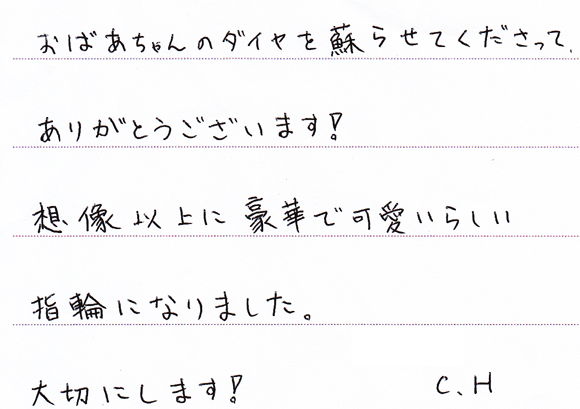 おばあちゃんのダイヤを蘇らせてくださって、
ありがとうございます!
想像以上に豪華で可愛いらしい
指輪になりました。
大切にします! C、H